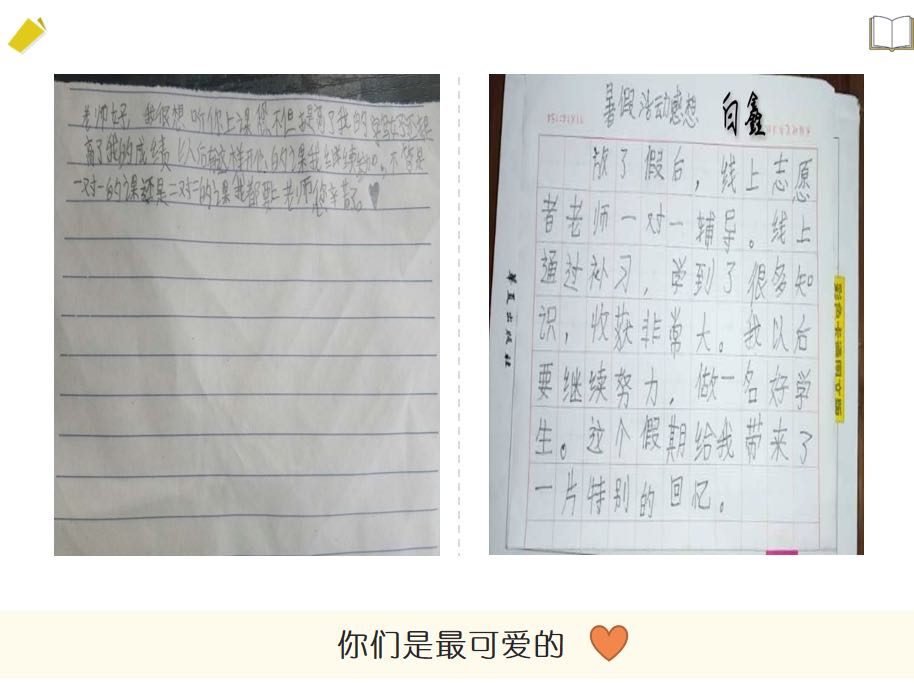 老师好 我很想听你上课 您不但提高了我的
高了我的成绩 以后有这样开心的课我继续 不管是
一对一的课还是二对二的课我都要上 老师您辛苦了
暑假活动感想 白鑫
放了假后，线上志愿
者老师一对一辅导。线上
通过补习，学到了很多知
识，收获非常大。我以后
要继续努力，做一名好学
生。这个假期给我带来了
一片特别的回忆。
华夏出版社
你们是最可爱的